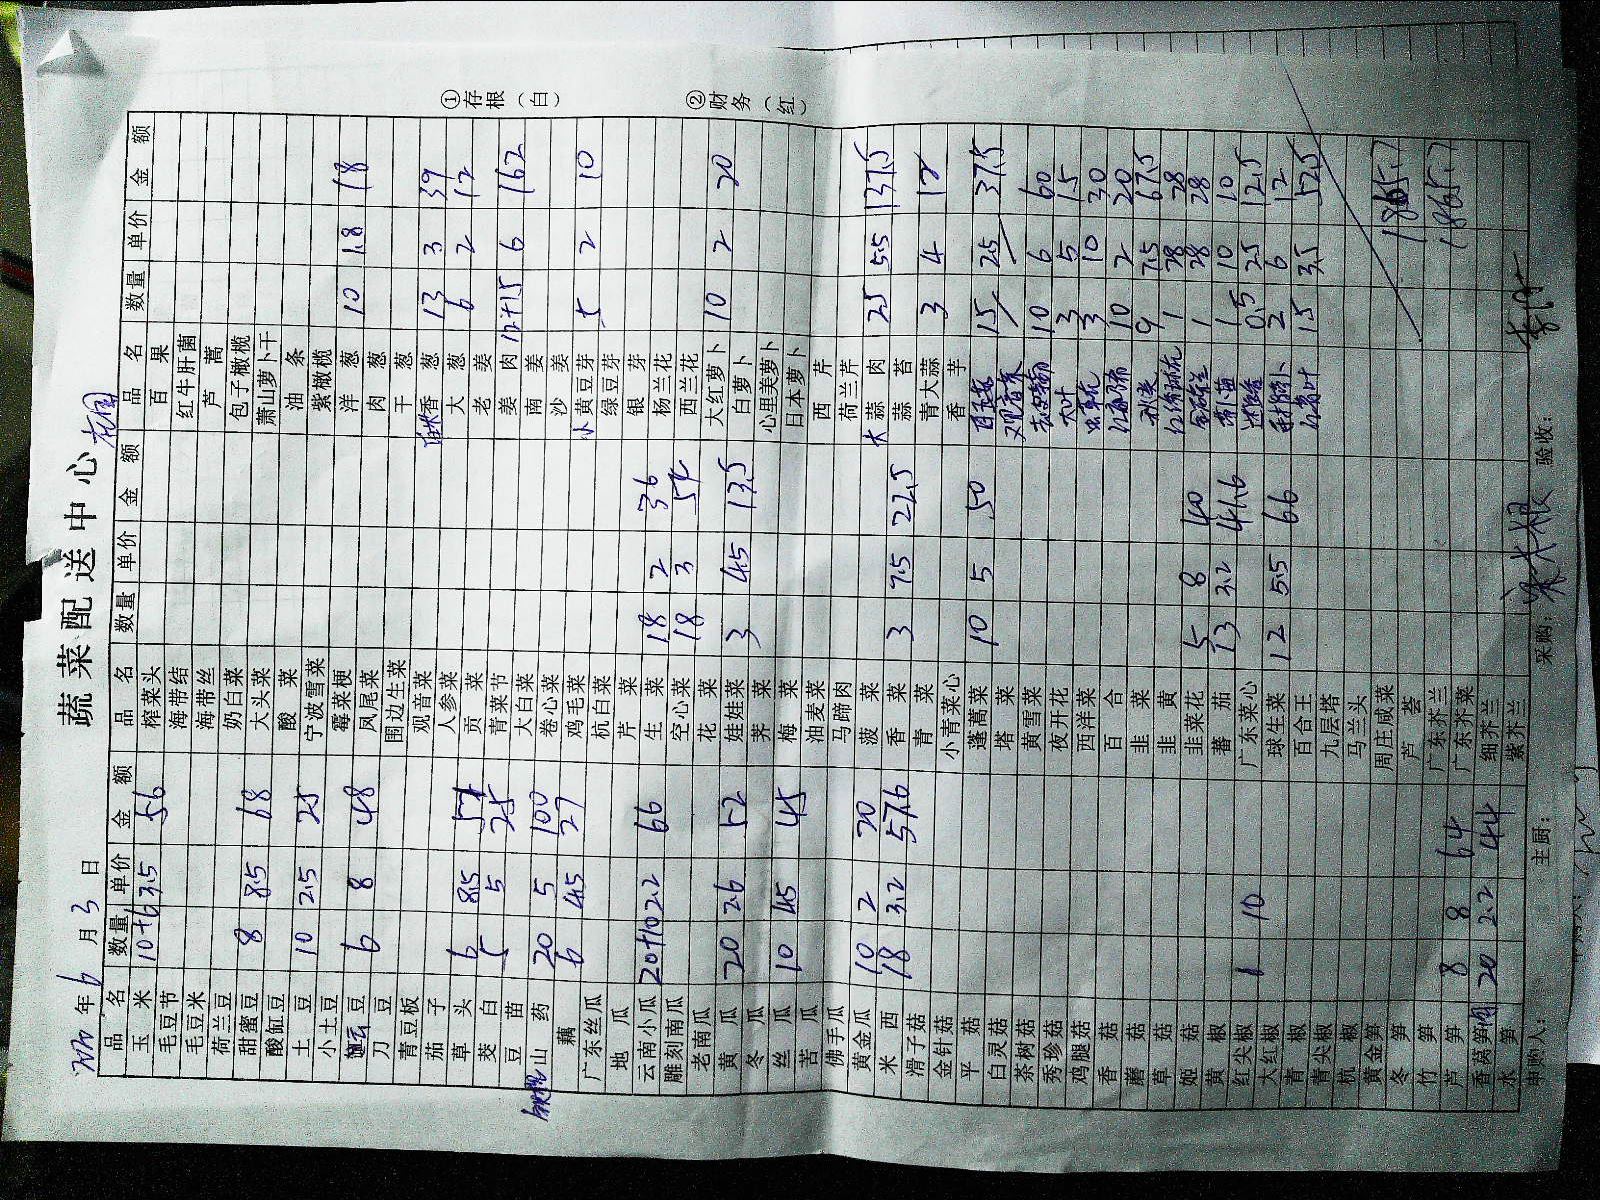 蔬菜配送中心
年6月3日
①存根(白)
②财务(红)
品名 数量 单价 金额 品名 数量 单价 金额 品名 数量 单价 金额
玉米 10+6 3.5 56 榨菜头 百果
毛豆节 海带结 红牛肝菌
毛豆米 海带丝 芦蒿
荷兰豆 奶白菜 包子橄榄
甜蜜豆 8 8.5 68 大头菜 萧山萝卜干
酸缸豆 酸菜 油条
土豆 10 2.5 25 宁波雪菜 紫橄榄
小土豆 霉菜梗 洋葱 10 1.8 18
豆 6 8 48 凤尾菜 肉葱
刀豆 围边生菜 干葱
青豆板 观音菜 香葱 13 3 39
茄子 人参菜 大葱 6 2 12
草头 6 8.5 51 贡菜 老姜
茭白 5 5 25 青菜节 姜肉 12+15 6 162
豆苗 大白菜 南姜
山药 20 5 100 卷心菜 沙姜
藕 6 4.5 27 鸡毛菜 小黄豆芽 5 2 10
广东丝瓜 杭白菜 绿豆芽
地瓜 芹菜 银芽
云南小瓜 20+10 2.2 66 生菜 18 2 36 杨兰花
雕刻南瓜 空心菜 18 3 54 西兰花
老南瓜 花菜 大红萝卜 10 2 20
黄瓜 20 2.6 52 娃娃菜 3 4.5 13.5 白萝卜
冬瓜 荠菜 心里美萝卜
丝瓜 10 4.5 45 梅菜 日本萝卜
苦瓜 油麦菜 西芹
佛手瓜 马蹄肉 荷兰芹
黄金瓜 10 2 20 菠菜 大蒜肉 25 5.5 137.5
米西 18 3.2 57.6 香菜 3 7.5 22.5 蒜苔
滑子菇 青菜 青大蒜 3 4 12
金针菇 小青菜心 香芋
平菇 蓬蒿菜 10 5 50 15 2.5 37.5
白灵菇 塔菜 观音菜
茶树菇 黄雪菜 10 6 60
秀珍菇 夜开花 大叶 3 5 15
鸡腿菇 西洋菜 3 10 30
香菇 百合 10 2 20
蘑菇 韭菜 秋葵 9 7.5 67.5
草菇 韭黄 1 28 28
姬菇 韭菜花 5 8 40 1 28 28
黄椒 蕃茄 13 3.2 41.6 1 10 10
红尖椒 1 10 广东菜心 0.5 25 12.5
大红椒 球生菜 12 5.5 66 2 6 12
青椒 百合王 15 3.5 52.5
青尖椒 九层塔
杭椒 马兰头
黄金笋 周庄咸菜 1865.7
冬笋 芦荟
竹笋 广东芥兰 1865.7
芦笋 8 8 64 广东芥菜
香莴笋 20 2.2 44 细芥兰
水笋 紫芥兰
申购人: 主厨: 采购: 验收: